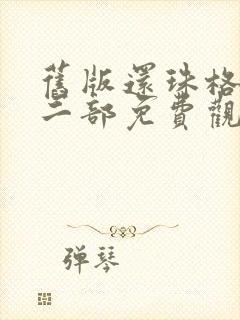 舊版還珠格
二部免費觀
弾琴